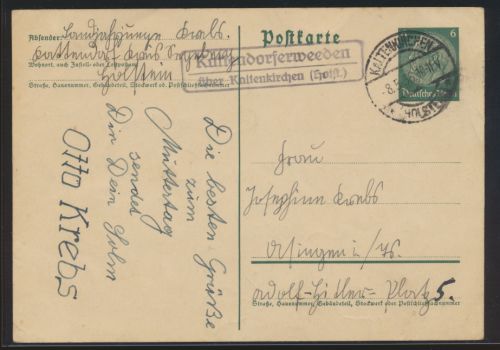 Absender: Landjahrjunge Krebs.
Kattendorf Krs. Segeberg
Wohnort, auch Zustell- oder Leitpostamt
Holstein
Straße, Hausnummer, Gebäudeteil, Stockwerk od. Postschließfachnummer
Postkarte
Kattendorferweeden
über Kaltenkirchen (Holst.)
KALTENKIRCHEN
HOLSTEIN
6
Deutsches Reich
Die besten Grüße
zum
Muttertag
sendet
Dir Dein Sohn
Otto Krebs
Frau
Josephine Krebs
i/W.
Adolf-Hitler-Platz 5.
Straße, Hausnummer, Gebäudeteil, Stockwerk oder Postschließfachnummer